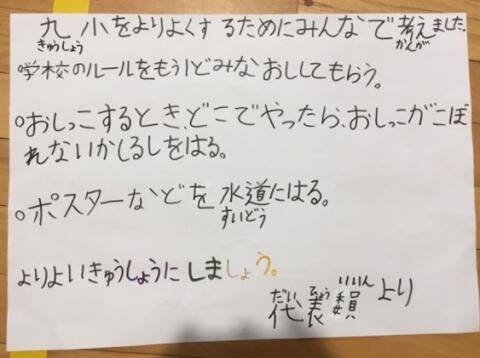 九小をよりよくするためにみんなで考えました。
きゅうしょう かんが
○学校のルールをもう1どみなおしてもらう。
○おしっこするとき、どこでやったら、おしっこがこぼ
れないかしるしをはる。
○ポスターなどを水道にはる。
すいどう
よりよいきゅうしょうにしましょう。
だいひょういいん
代表委員より